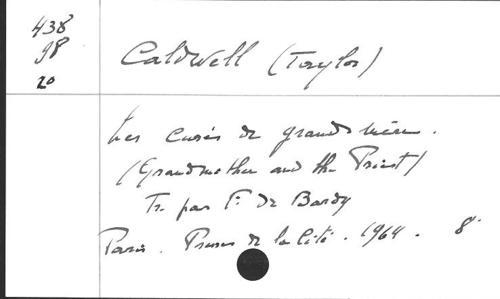 438
98
20
Caldwell (Taylor)
Les Curés de grand'mère.
(Grandmother and the Priest)
Tr. par P. de Bardy
Paris. Presses de la Cité. 1964. 8°